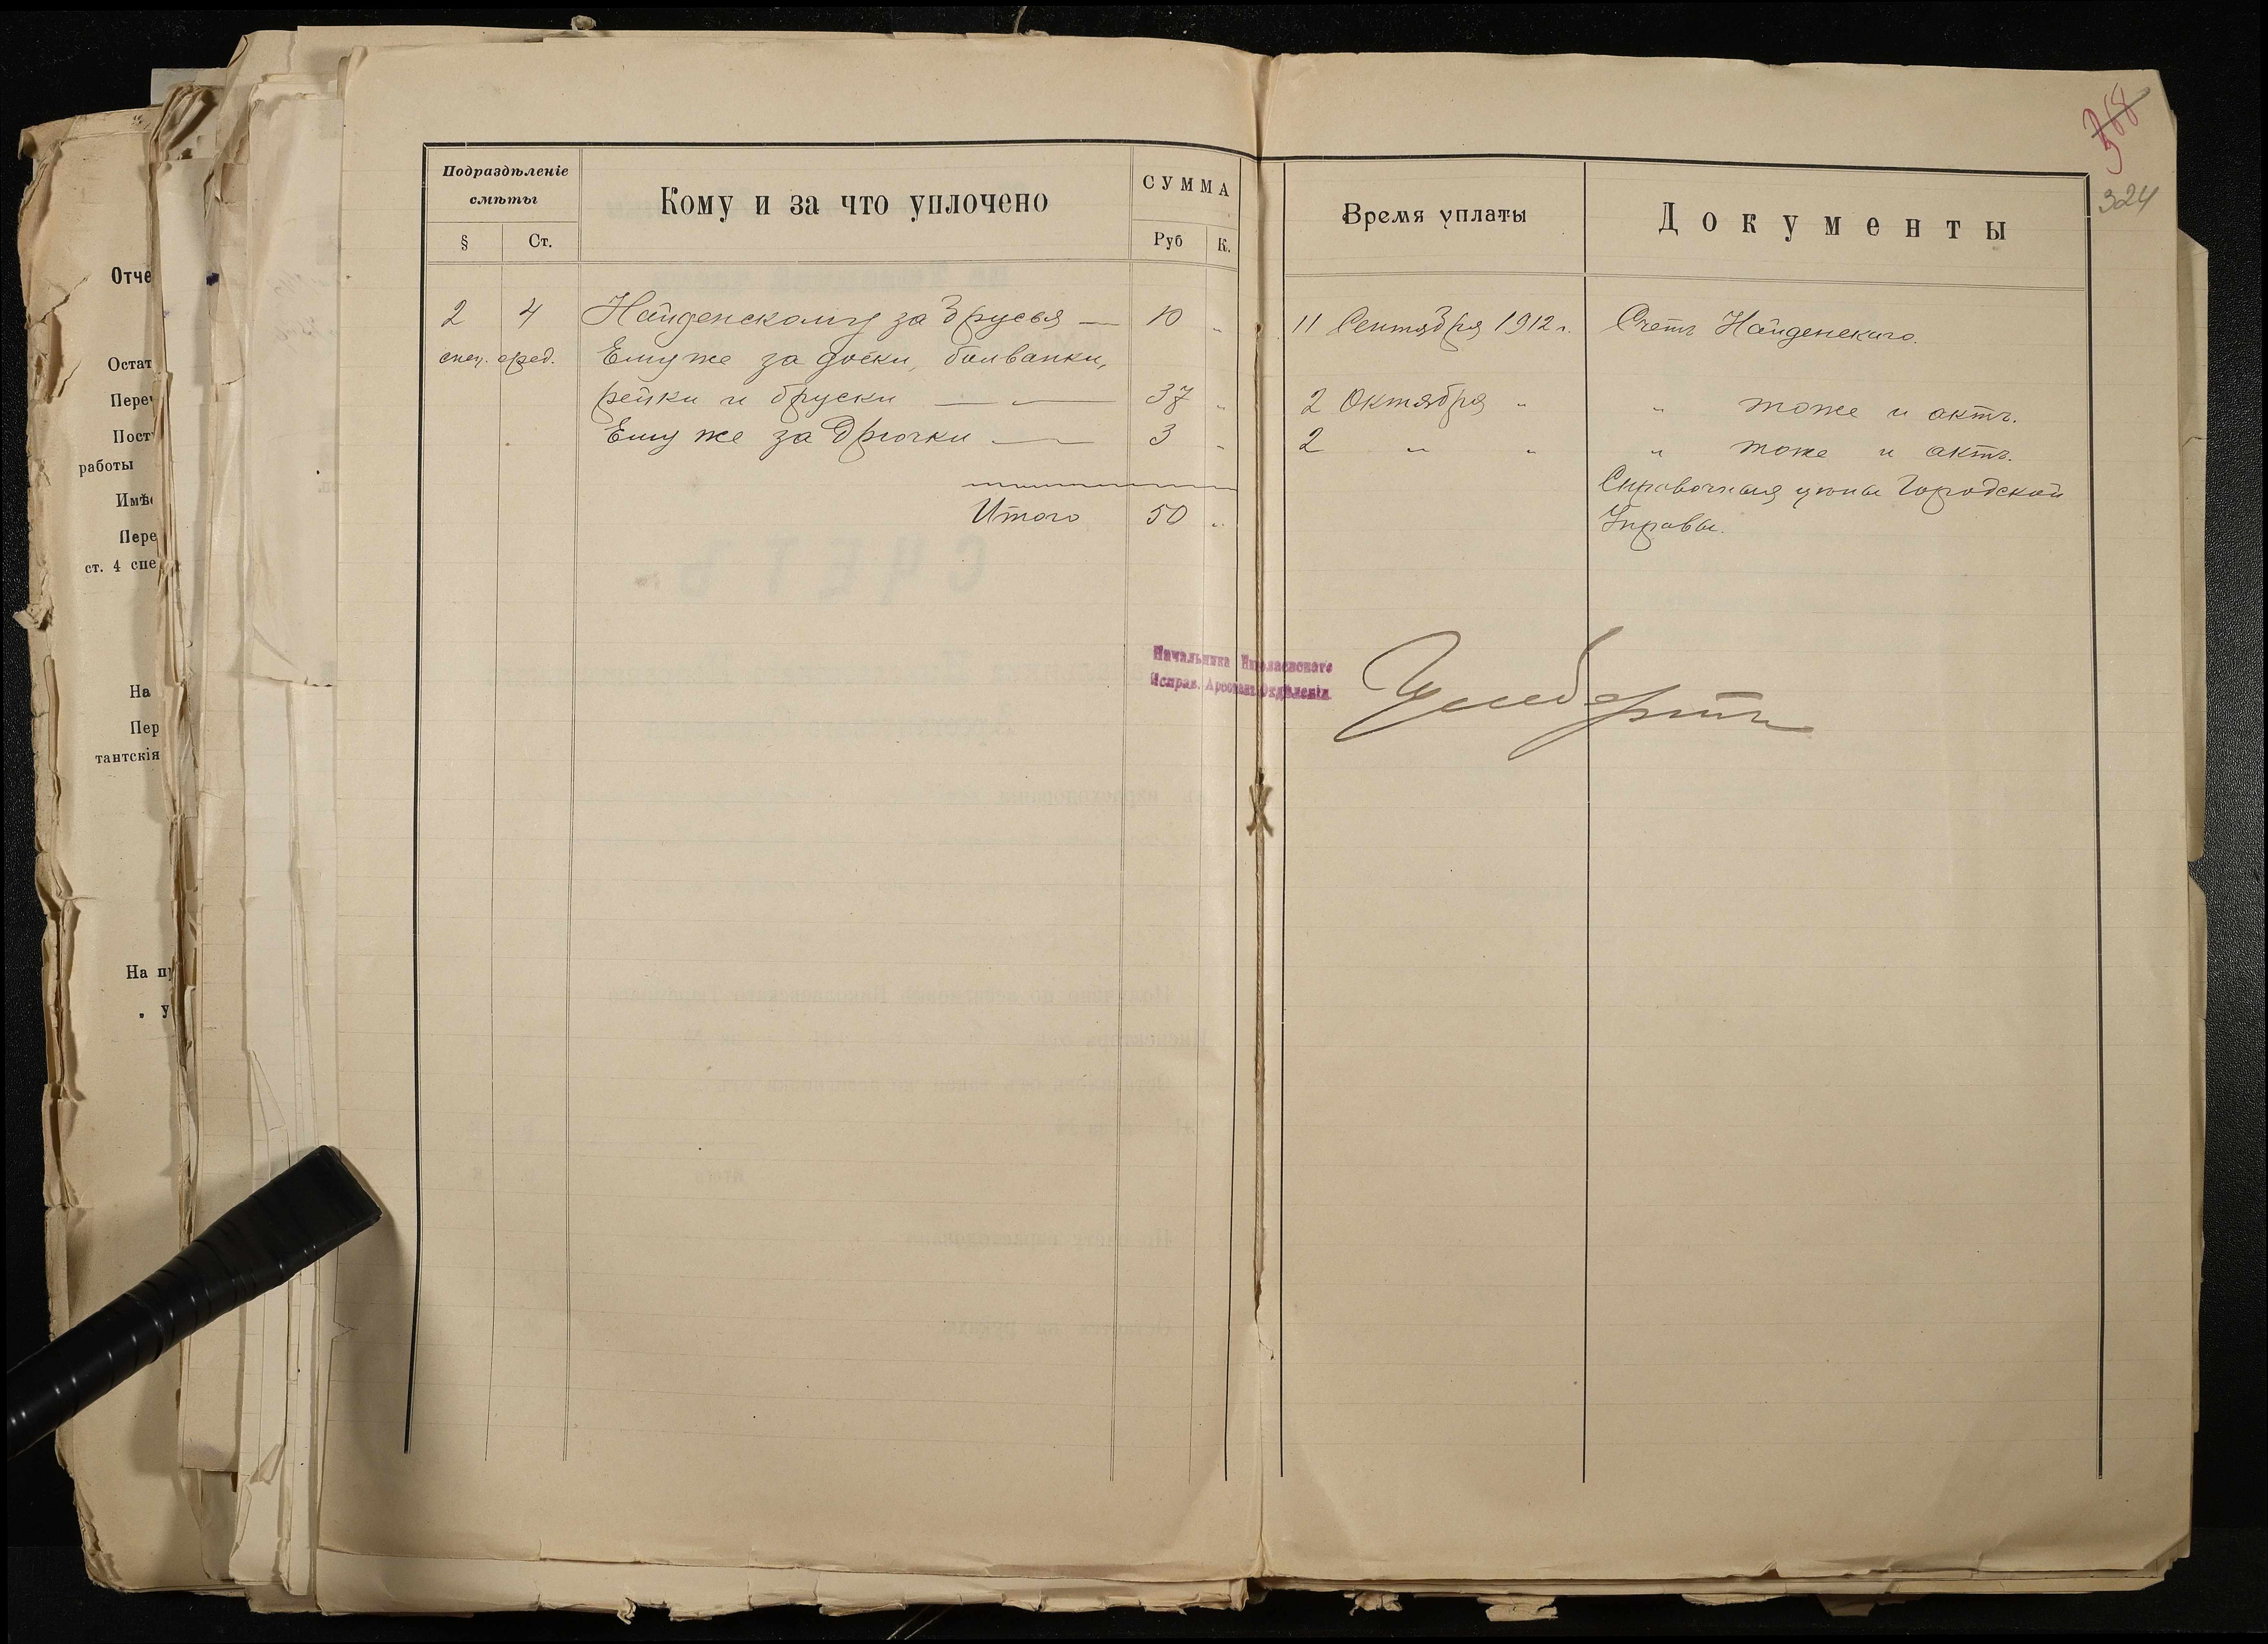 368
324
Подраздѣленіе
смѣты
§ Ст.
Кому и за что уплочено
СУММА
Руб К.
Время уплаты
Документы
2 4 Найденскому за брусья — 10 „ 11 Сентября 1912 г. Счетъ Найденскаго.
спец. сред. Ему же за доски, болванки,
рейки и бруски — — 37 „ 2 Октября „ „ тоже и актъ.
Ему же за дрючки — 3 „ 2 „ „ „ тоже и актъ.
Справочныя цѣны Городской
Управы.
Итого 50 „
Начальника Николаевскаго
Исправ. Арестан. Отдѣленія
Отче
Остат
Переч
Пост
работы
Имѣ
Пере
ст. 4 спе
На
Пер
тантскія
На п
„ у